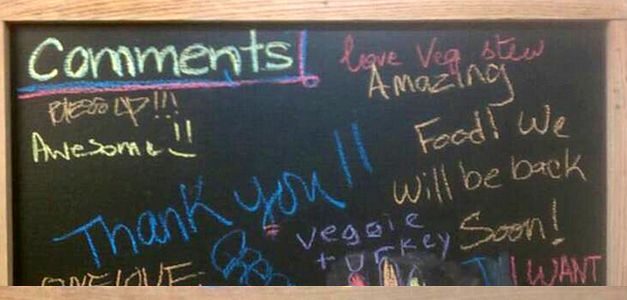 Comments!
love Veg. stew
Blessup!!!
Awesome!!
Amazing
Food! We
will be back
Soon!
Thank you!!
veggie
turkey
ONE LOVE
I WANT